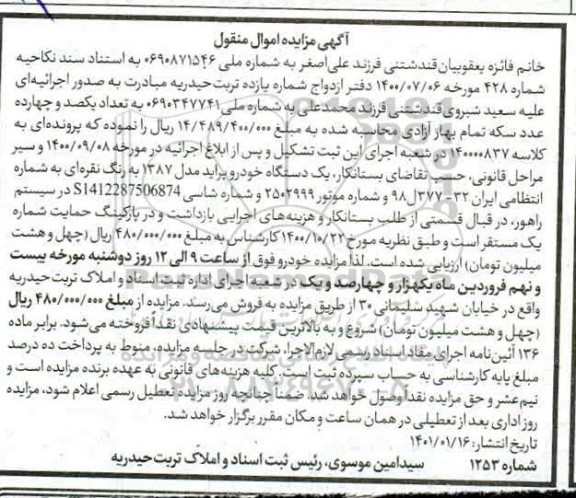 آگهی مزایده اموال منقول
خانم فائزه یعقوبیان قندشتنی فرزند علی‌اصغر به شماره ملی ۰۶۹۰۸۷۱۵۴۶ به استناد سند نکاحیه
شماره ۴۲۸ مورخه ۱۴۰۰/۰۷/۰۶ دفتر ازدواج شماره یازده تربت‌حیدریه مبادرت به صدور اجرائیه‌ای
علیه سعید شیروی قندشتنی فرزند محمدعلی به شماره ملی ۰۶۹۰۳۴۷۷۴۱ به تعداد یکصد و چهارده
عدد سکه تمام بهار آزادی محاسبه شده به مبلغ ۱۴/۴۸۹/۴۰۰/۰۰۰ ریال را نموده که پرونده‌ای به
کلاسه ۱۴۰۰۰۰۸۳۷ در شعبه اجرای این ثبت تشکیل و پس از ابلاغ اجرائیه در مورخه ۱۴۰۰/۰۹/۰۸ و سیر
مراحل قانونی، حسب تقاضای بستانکار، یک دستگاه خودرو پراید مدل ۱۳۸۷ به رنگ نقره‌ای به شماره
انتظامی ایران ۳۲-۳۷۷ل۹۸ و شماره موتور ۲۵۰۲۹۹۹ و شماره شاسی S1412287506874 در سیستم
راهور، در قبال قسمتی از طلب بستانکار و هزینه‌های اجرایی بازداشت و در پارکینگ حمایت شماره
یک مستقر است و طبق نظریه مورخ ۱۴۰۰/۱۰/۲۲ کارشناس به مبلغ ۴۸۰/۰۰۰/۰۰۰ ریال (چهل و هشت
میلیون تومان) ارزیابی شده است. لذا مزایده خودرو فوق از ساعت ۹ الی ۱۲ روز دوشنبه مورخه بیست
و نهم فروردین ماه یکهزار و چهارصد و یک در شعبه اجرای اداره ثبت اسناد و املاک تربت‌حیدریه
واقع در خیابان شهید سلیمانی ۳۰ از طریق مزایده به فروش می‌رسد. مزایده از مبلغ ۴۸۰/۰۰۰/۰۰۰ ریال
(چهل و هشت میلیون تومان) شروع و به بالاترین قیمت پیشنهادی نقداً فروخته می‌شود. برابر ماده
۱۳۶ آئین‌نامه اجرای مفاد اسناد رسمی لازم‌الاجرا، شرکت در جلسه مزایده، منوط به پرداخت ده درصد
مبلغ پایه کارشناسی به حساب سپرده ثبت است. کلیه هزینه‌های قانونی به عهده برنده مزایده است و
نیم‌عشر و حق مزایده نقداً وصول خواهد شد. ضمناً چنانچه روز مزایده تعطیل رسمی اعلام شود، مزایده
روز اداری بعد از تعطیلی در همان ساعت و مکان مقرر برگزار خواهد شد.
تاریخ انتشار: ۱۴۰۱/۰۱/۱۶
شماره ۱۲۵۳ سیدامین موسوی، رئیس ثبت اسناد و املاک تربت‌حیدریه